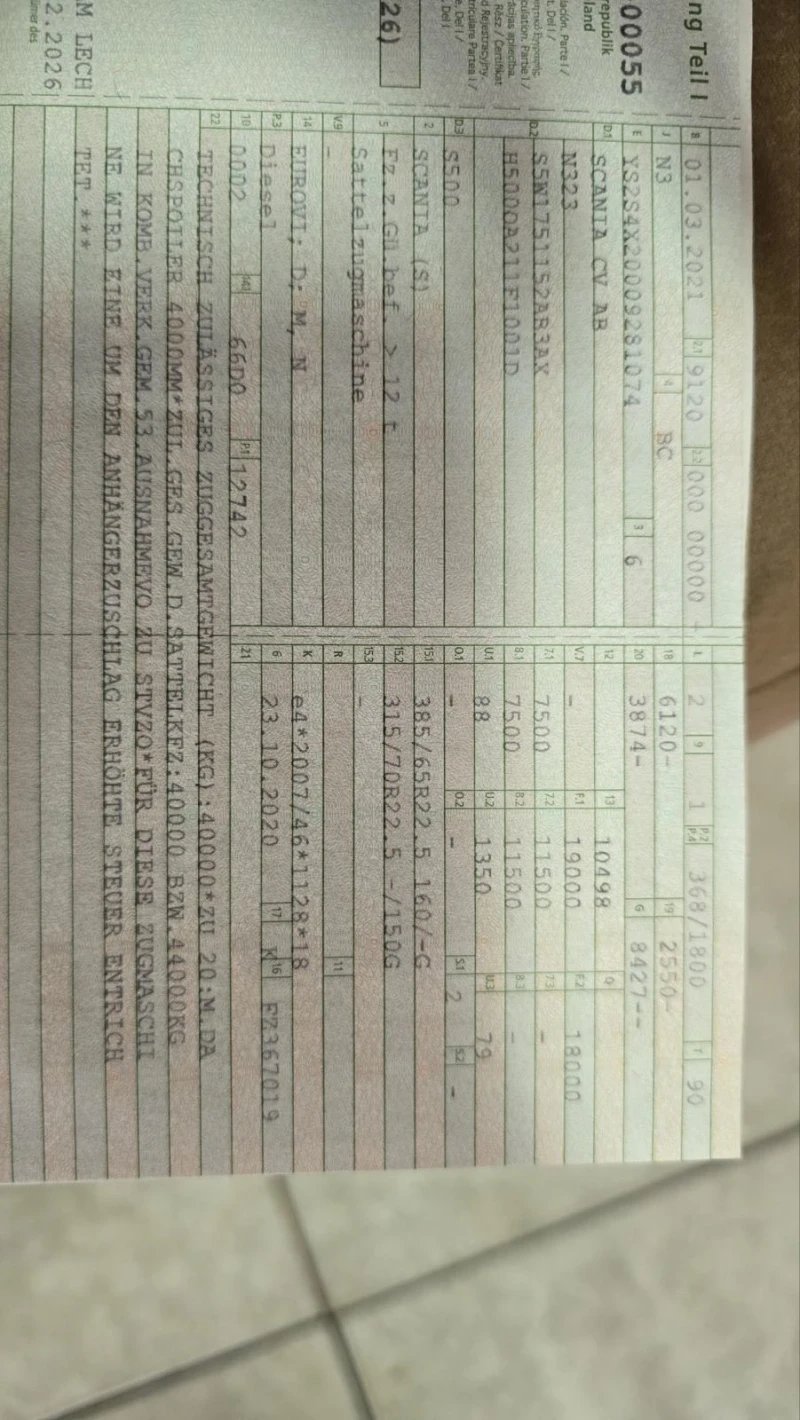 ng Teil I
00055
republik
land
ación. Parte I /
t. Del I /
culation. Partie I /
Rész / Certifikat
d Rejestracyjny.
triculare Partea I /
e. Del I /
. Del I
26)
M LECH
2.2026
B 01.03.2021 2.1 9120 2.2 000 00000
J N3 4 BC
E YS2S4X20009281074 3 6
D.1 SCANIA CV AB
N323
D.2 S5W1751152AB3AX
H5000A211F1001D
D.3 S500
2 SCANIA (S)
5 Fz.z.Gü.bef. > 12 t
Sattelzugmaschine
V.9 -
14 EUROVI; D; M, N
P.3 Diesel
10 0002 14.1 66D0 P.1 12742
L 2 9 1 P.2 P.4 368/1800 T 90
18 6120- 19 2550-
20 3874- G 8427--
12 13 10498 Q
V.7 - F.1 19000 F.2 18000
7.1 7500 7.2 11500 7.3 -
8.1 7500 8.2 11500 8.3 -
U.1 88 U.2 1350 U.3 79
O.1 - O.2 - S.1 2 S.2 -
15.1 385/65R22.5 160/-G
15.2 315/70R22.5 -/150G
15.3 -
R 11
K e4*2007/46*1128*18
6 23.10.2020 17 K 16 FZ367019
21
22 TECHNISCH ZULÄSSIGES ZUGGESAMTGEWICHT (KG):40000*ZU 20:M.DA
CHSPOILER 4000MM*ZUL.GES.GEW.D.SATTELKFZ:40000 BZW.44000KG
IN KOMB.VERK.GEM.53.AUSNAHMEVO ZU STVZO*FÜR DIESE ZUGMASCHI
NE WIRD EINE UM DEN ANHÄNGERZUSCHLAG ERHÖHTE STEUER ENTRICH
TET.***